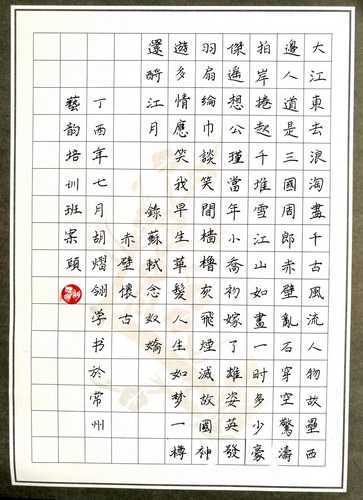 大江東去浪淘盡千古風流人物故壘西
邊人道是三國周郎赤壁亂石穿空驚濤
拍岸捲起千堆雪江山如畫一时多少豪
傑遥想公瑾當年小喬初嫁了雄姿英發
羽扇綸巾談笑間檣櫓灰飛煙滅故國神
遊多情應笑我早生華髮人生如梦一樽
還酹江月 錄蘇軾念奴嬌
赤壁懷古
丁酉年七月胡熠翎学书於常州
藝韵培训班案頭